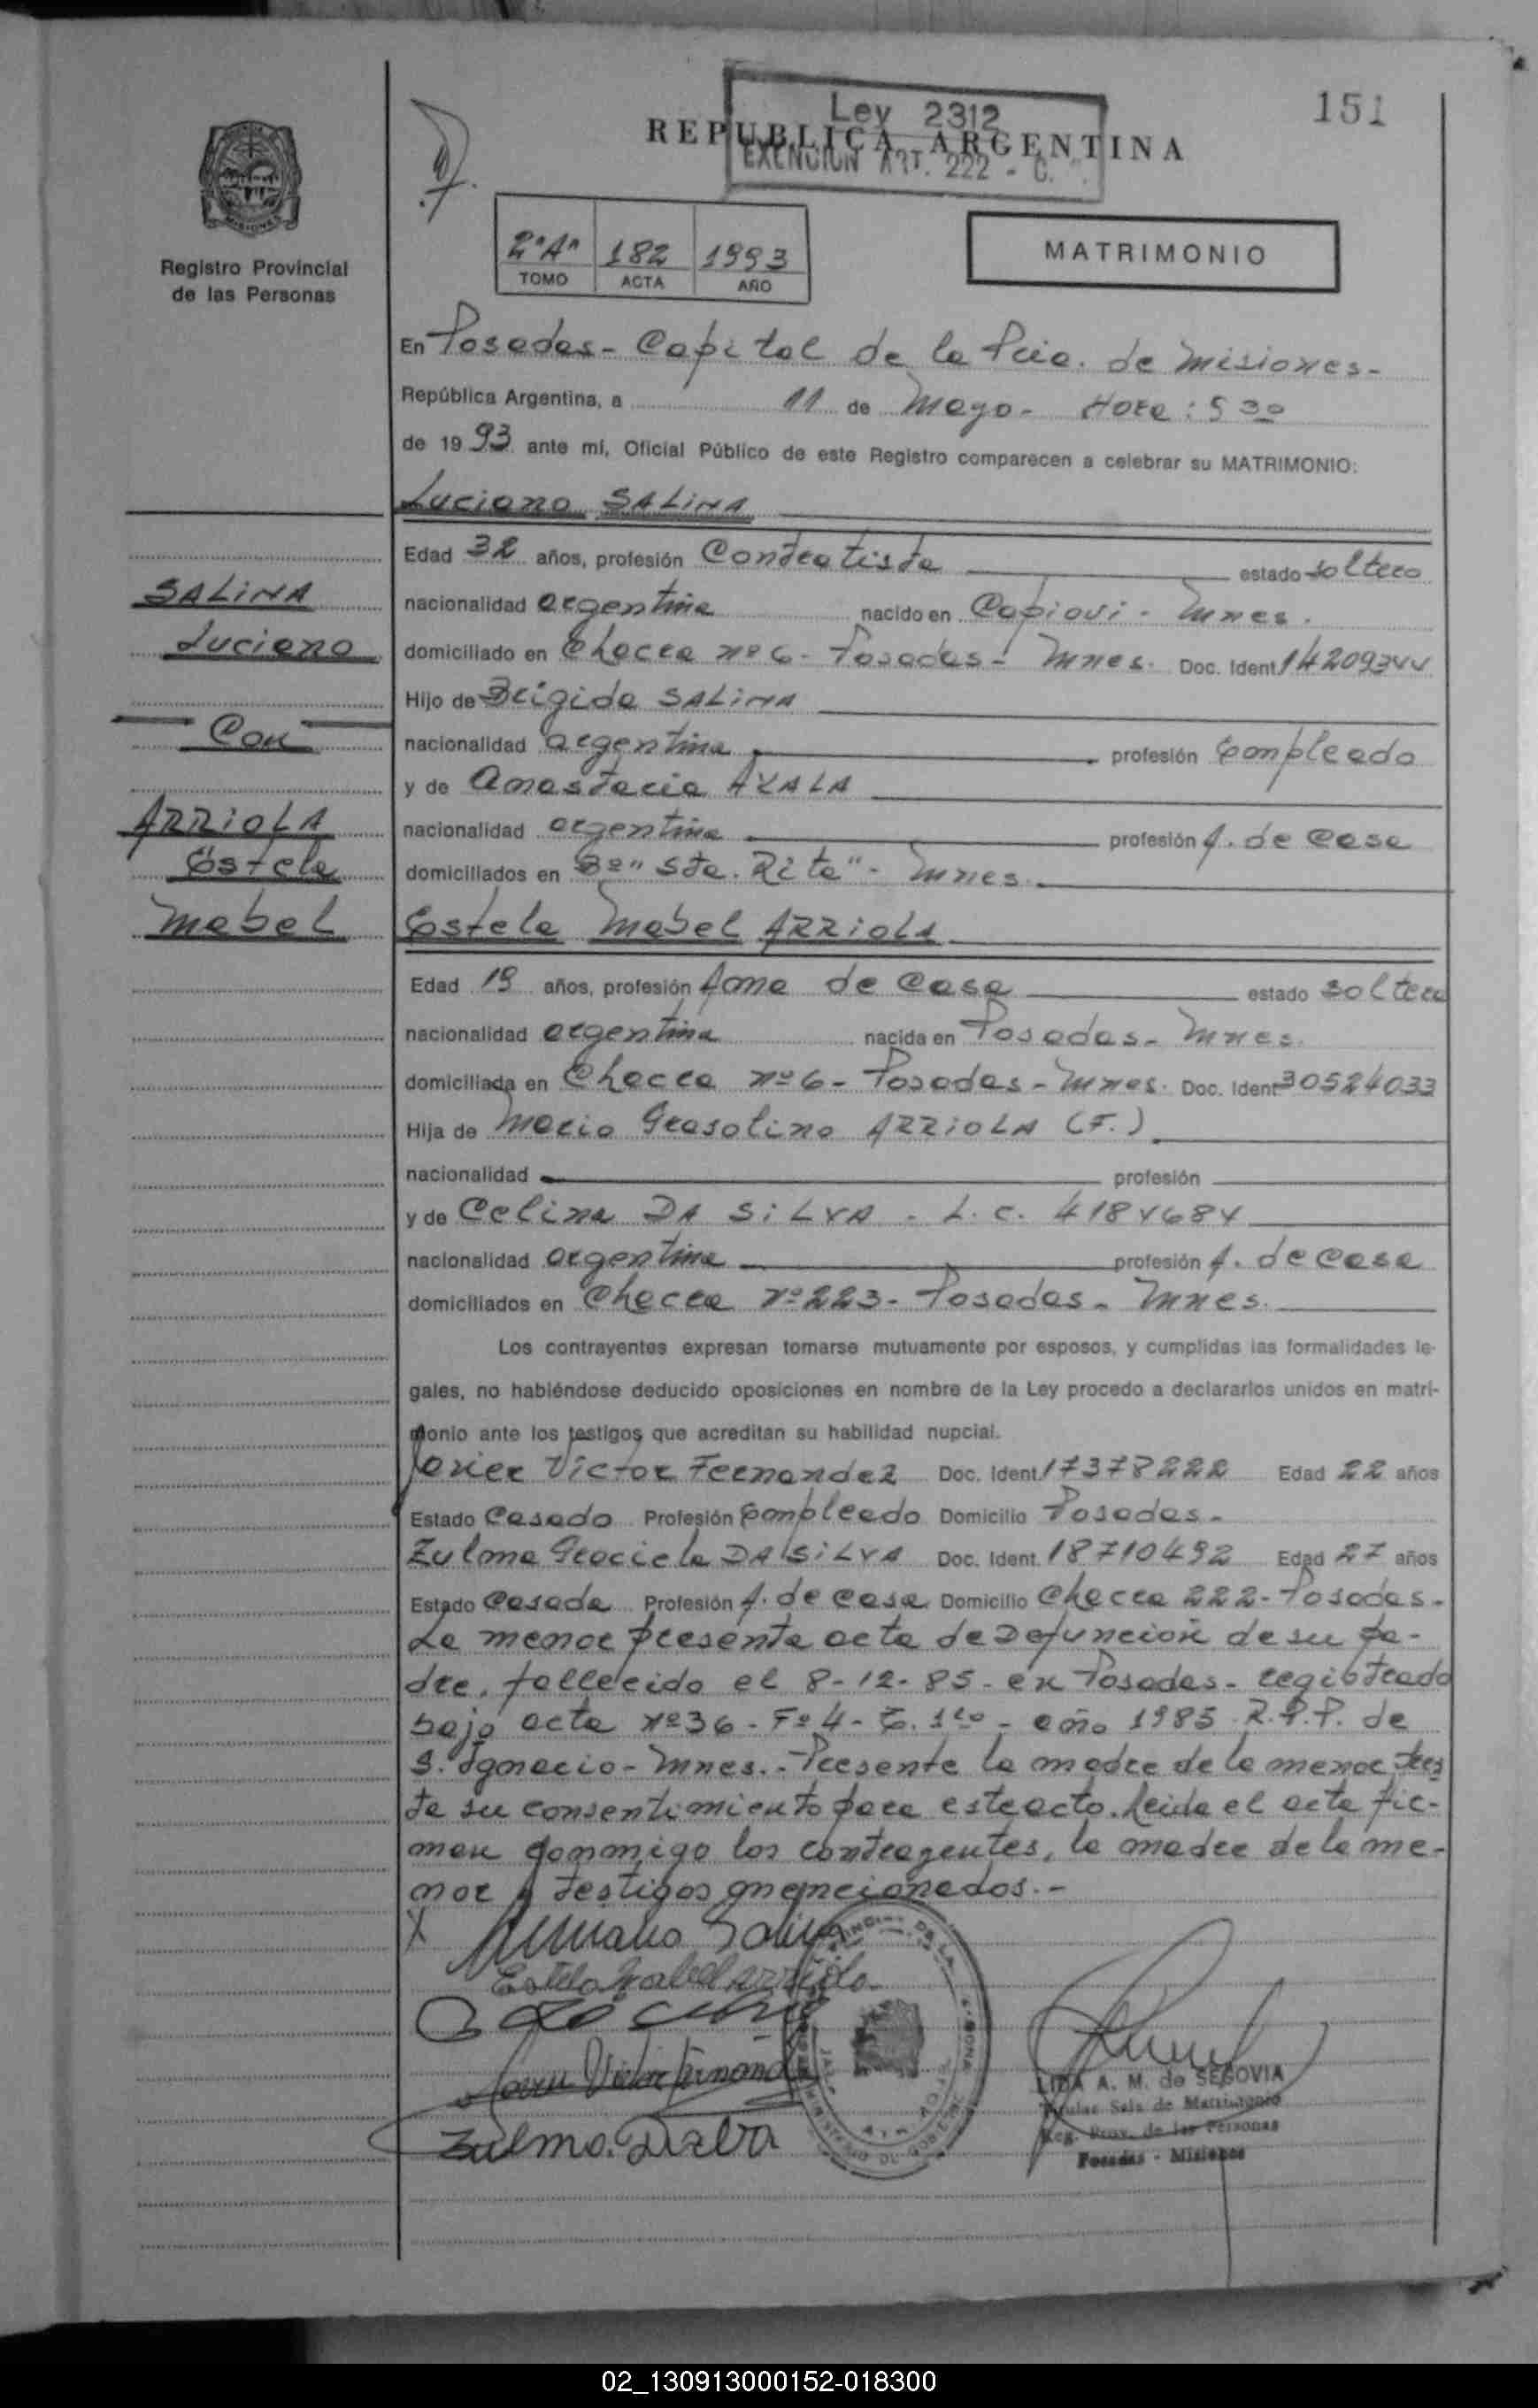 151
Ley 2312
REPUBLICA ARGENTINA
EXENCION ART. 222 - C.
Registro Provincial
de las Personas
2º "A" 182 1993
TOMO ACTA AÑO
MATRIMONIO
En Posadas - Capital de la Pcia. de Misiones -
República Argentina, a 11 de Mayo - Hora: 5 30
de 19 93 ante mí, Oficial Público de este Registro comparecen a celebrar su MATRIMONIO:
Luciano SALINA
Edad 32 años, profesión Contratista estado soltero
SALINA
nacionalidad argentina nacido en Capiovi - Mnes.
Luciano
domiciliado en Chacra nº 6 - Posadas - Mnes. Doc. Ident. 14209344
Hijo de Brigido SALINA
Con
nacionalidad argentina profesión Empleado
y de Anastacia AYALA
ARRIOLA
nacionalidad argentina profesión A. de Casa
Estela
domiciliados en Bº "Sta. Rita" - Mnes.
Mabel
Estela Mabel ARRIOLA
Edad 19 años, profesión Ama de Casa estado soltera
nacionalidad argentina nacida en Posadas - Mnes.
domiciliada en Chacra nº 6 - Posadas - Mnes. Doc. Ident. 30524033
Hija de Mario Grasolino ARRIOLA (F.)
nacionalidad profesión
y de Celina DA SILVA - L.C. 4184684
nacionalidad argentina profesión A. de Casa
domiciliados en Chacra nº 223 - Posadas - Mnes.
Los contrayentes expresan tomarse mutuamente por esposos, y cumplidas las formalidades le-
gales, no habiéndose deducido oposiciones en nombre de la Ley procedo a declararlos unidos en matri-
monio ante los testigos que acreditan su habilidad nupcial.
Javier Victor Fernandez Doc. Ident. 17378222 Edad 22 años
Estado Casado Profesión Empleado Domicilio Posadas -
Zulma Graciela DA SILVA Doc. Ident. 18710492 Edad 27 años
Estado Casada Profesión A. de Casa Domicilio Chacra 222 - Posadas -
La menor presenta acta de Defunción de su pa-
dre, fallecido el 8-12-85 - en Posadas - registrado
bajo acta nº 36 - Fº 4 - T. 1ro - año 1985 R.P.P. de
S. Ignacio - Mnes. - Presente la madre de la menor, pres
ta su consentimiento para este acto. Leida el acta fir-
man conmigo los contrayentes, la madre de la me-
nor y testigos mencionados. -
X Luciano Salina
Estela Mabel Arriola
Javier Victor Fernandez
Zulma. Da Silva
LIDA A. M. de SEGOVIA
Titular Sala de Matrimonio
Reg. Prov. de las Personas
Posadas - Misiones
02_130913000152-018300